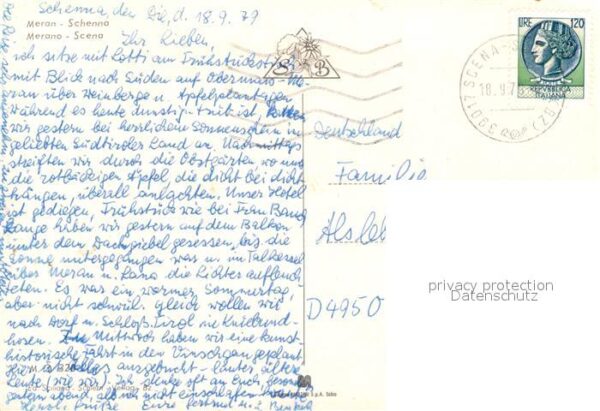 Schenna, den Die, d. 18.9.79
Meran - Schenna
Merano - Scena
Ihr Lieben
ich sitze mit Lotti am Frühstückstisch
mit Blick nach Süden auf Obermais-Me-
ran über Weinberge u. Apfelplantagen
Während es heute dunstig-trüb ist, hatten
wir gestern bei herrlichem Sonnenschein im
geliebten Südtiroler Land an. Nachmittags
streiften wir durch die Obstgärten wo uns
die rotbäckigen Äpfel, die dicht bei dicht
hängen, überall anlachten. Unser Hotel
ist gediegen, Frühstück wie bei Frau
Lange haben wir gestern auf dem Balkon
unter dem Dachgiebel gesessen, bis die
Sonne untergegangen war u. im Talkessel
über Meran u. Lana die Lichter aufleuch-
teten. Es war ein warmer Sommertag,
aber nicht schwül. Gleich wollen wir
nach Dorf u. Schloß Tirol in Kniebund-
hosen. Mittwoch haben wir eine kunst-
historische Fahrt in den Vinschgau geplant
Hier ist alles ausgebucht - lauter ältere
Leute (wie wir). Ich denke oft an Euch, besonders
gestern abend, als ich nicht einschlafen
Herzl. Grüße Eure
S B
LIRE 120
REPUBBLICA
ITALIANA
39017 SCENA
18.9.7
(BZ)
Deutschland
Familie
Alsleb
D4950
privacy protection
Datenschutz